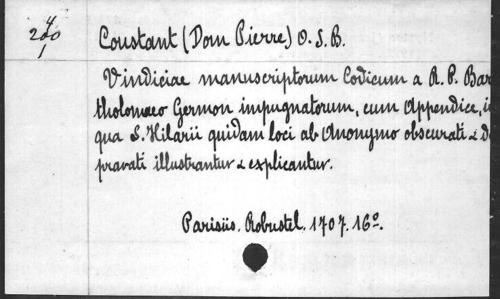 4
200
1
Coustant (Dom Pierre) O. S. B.
Vindiciae manuscriptorum Codicum a R. P. Bar
tholomaeo Germon impugnatorum, cum Appendice, i
qua S. Hilarii quidam loci ab Anonymo obscurati & D
pravati illustrantur & explicantur.
Parisiis. Robustel. 1707. 16º.